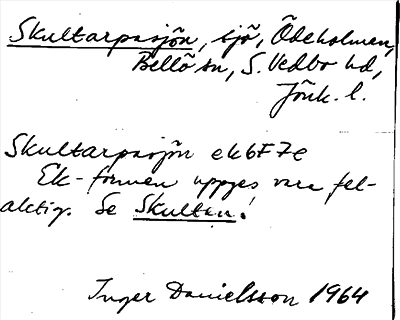 Skultarpasjön, sjö, Ödeholmen,
Bellö sn, S. Vedbo hd,
Jönk. l.
Skultarpasjön ek6F7e
Ek-formen uppges vara fel-
aktig. Se Skulten!
Inger Danielsson 1964